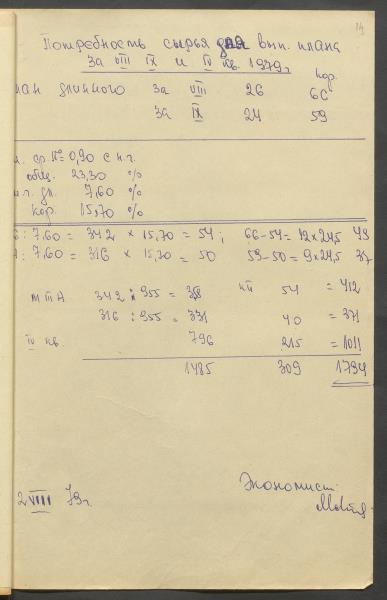 Потребность сырья для вып. плана
за VIII IX и IV кв. 1979г.
кор.
лан длинного за VIII 26 66
за IX 24 59
ср № = 0,90 с н.г.
общ. 23,30 %
дл. 7,60 %
кор. 15,70 %
: 7,60 = 342 × 15,70 = 54; 66-54 = 12 × 24,5 49
: 7,60 = 316 × 15,70 = 50 59-50 = 9 × 24,5 37
МТА 342 : 955 = 358 КП 54 = 412
316 : 955 = 331 40 = 371
IV кв. 796 215 = 1011
1485 309 1794
Экономист:
2 VIII 79г.